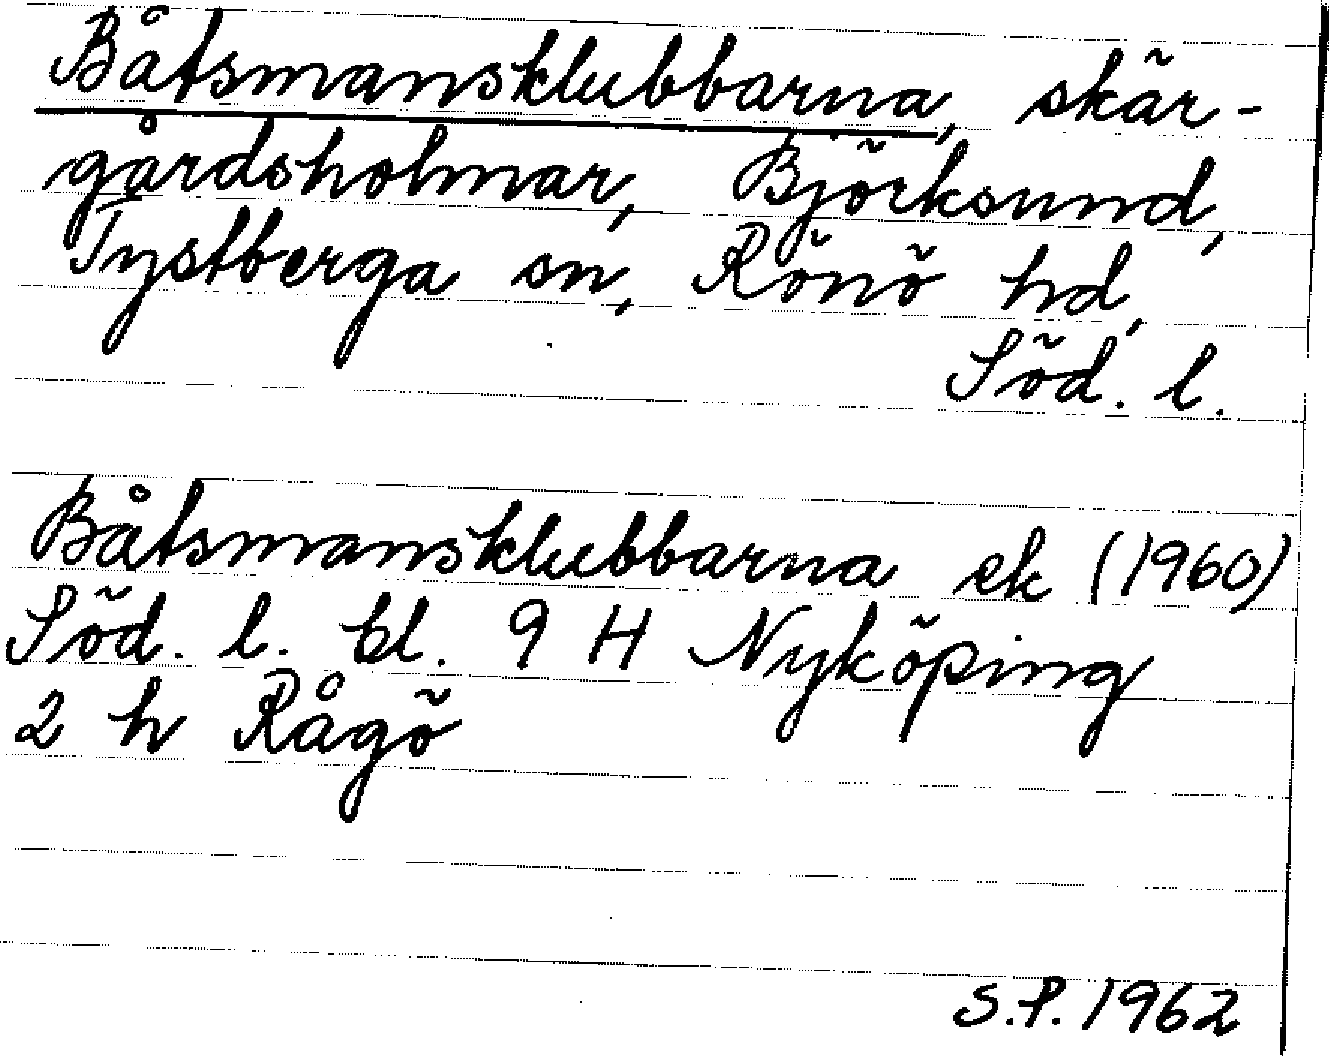 Båtsmansklubbarna, skär-
gårdsholmar, Björksund,
Tystberga sn, Rönö hd,
Söd. l.
Båtsmansklubbarna ek (1960)
Söd. l. bl. 9 H Nyköping
2 h Rågö
S.P. 1962